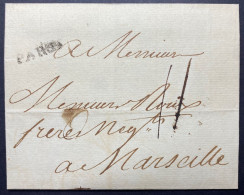 PARIS
A Messieurs
Messieurs Roux
freres Neg.ts
a Marseille